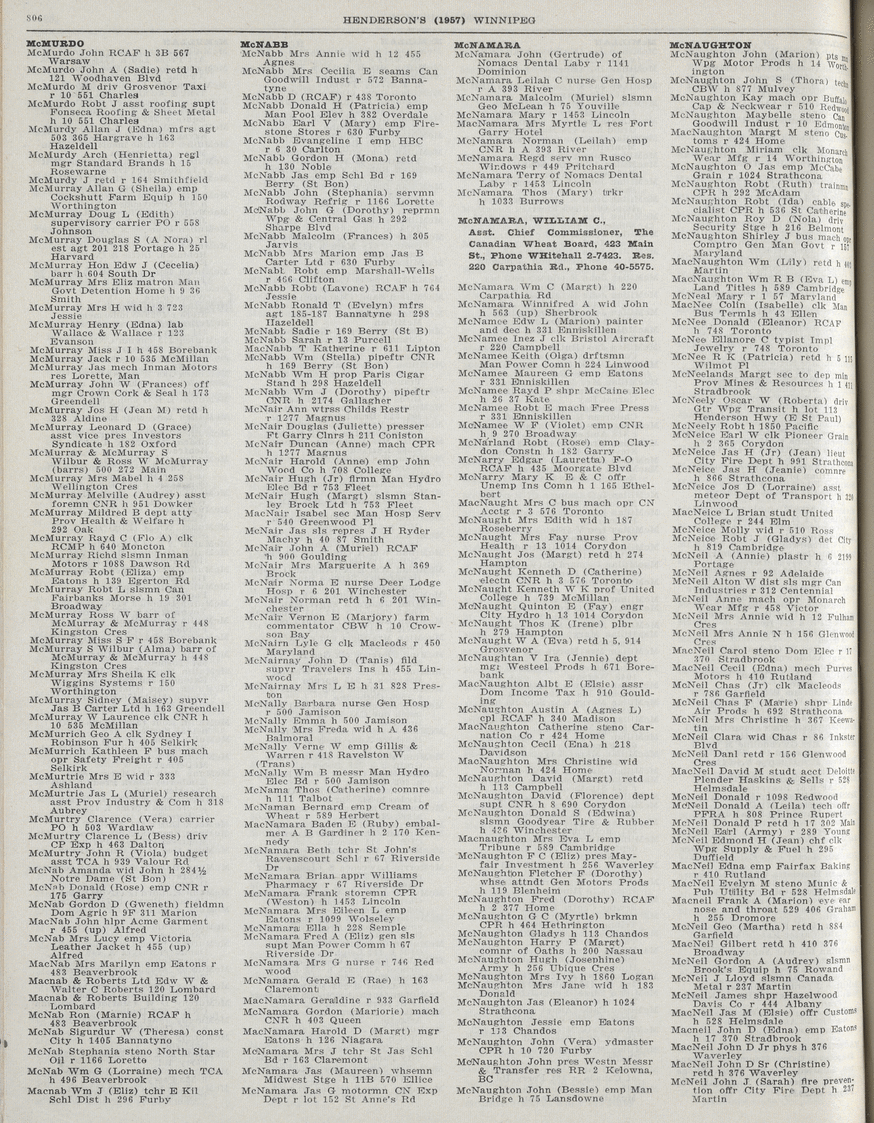 806
HENDERSON'S (1957) WINNIPEG
McMURDO
McMurdo John RCAF h 3B 567
Warsaw
McMurdo John A (Sadie) retd h
121 Woodhaven Blvd
McMurdo M driv Grosvenor Taxi
r 10 551 Charles
McMurdo Robt J asst roofing supt
Fonseca Roofing & Sheet Metal
h 10 551 Charles
McMurdy Allan J (Edna) mfrs agt
503 365 Hargrave h 163
Hazeldell
McMurdy Arch (Henrietta) regl
mgr Standard Brands h 15
Rosewarne
McMurdy J retd r 164 Smithfield
McMurray Allan G (Sheila) emp
Cockshutt Farm Equip h 150
Worthington
McMurray Doug L (Edith)
supervisory carrier PO r 558
Johnson
McMurray Douglas S (A Nora) rl
est agt 201 218 Portage h 25
Harvard
McMurray Hon Edw J (Cecelia)
barr h 604 South Dr
McMurray Mrs Eliz matron Man
Govt Detention Home h 9 36
Smith
McMurray Mrs H wid h 3 723
Jessie
McMurray Henry (Edna) lab
Wallace & Wallace r 123
Evanson
McMurray Miss J I h 458 Borebank
McMurray Jack r 10 535 McMillan
McMurray Jas mech Inman Motors
res Lorette, Man
McMurray John W (Frances) off
mgr Crown Cork & Seal h 173
Greendell
McMurray Jos H (Jean M) retd h
328 Aldine
McMurray Leonard D (Grace)
asst vice pres Investors
Syndicate h 182 Oxford
McMurray & McMurray S
Wilbur & Ross W McMurray
(barrs) 500 272 Main
McMurray Mrs Mabel h 4 258
Wellington Cres
McMurray Melville (Audrey) asst
foremn CNR h 951 Dowker
McMurray Mildred B dept atty
Prov Health & Welfare h
292 Oak
McMurray Rayd C (Flo A) clk
RCMP h 640 Moncton
McMurray Richd slsmn Inman
Motors r 1088 Dawson Rd
McMurray Robt (Eliza) emp
Eatons h 139 Egerton Rd
McMurray Robt L slsmn Can
Fairbanks Morse h 19 301
Broadway
McMurray Ross W barr of
McMurray & McMurray r 448
Kingston Cres
McMurray Miss S F r 458 Borebank
McMurray S Wilbur (Alma) barr of
McMurray & McMurray h 448
Kingston Cres
McMurray Mrs Sheila K clk
Wiggins Systems r 150
Worthington
McMurray Sidney (Maisey) supvr
Jas B Carter Ltd h 163 Greendell
McMurray W Laurence clk CNR h
10 535 McMillan
McMurrich Geo A clk Sydney I
Robinson Fur h 405 Selkirk
McMurrich Kathleen F bus mach
opr Safety Freight r 405
Selkirk
McMurtrie Mrs E wid r 333
Ashland
McMurtrie Jas L (Muriel) research
asst Prov Industry & Com h 318
Aubrey
McMurtry Clarence (Vera) carrier
PO h 503 Wardlaw
McMurtry Clarence J (Bess) driv
CP Exp h 463 Dalton
McMurtry John R (Viola) budget
asst TCA h 939 Valour Rd
McNab Amanda wid John h 284½
Notre Dame (St Bon)
McNab Donald (Rose) emp CNR r
175 Garry
McNab Gordon D (Gweneth) fieldmn
Dom Agric h 9F 311 Marion
MacNab John hlpr Acme Garment
r 455 (up) Alfred
McNab Mrs Lucy emp Victoria
Leather Jacket h 455 (up)
Alfred
MacNab Mrs Marilyn emp Eatons r
483 Beaverbrook
Macnab & Roberts Ltd Edw W &
Walter C Roberts 120 Lombard
Macnab & Roberts Building 120
Lombard
McNab Ron (Marnie) RCAF h
483 Beaverbrook
McNab Sigurdur W (Theresa) const
City h 1405 Bannatyne
McNab Stephania steno North Star
Oil r 1166 Lorette
McNab Wm G (Lorraine) mech TCA
h 496 Beaverbrook
Macnab Wm J (Eliz) tchr E Kil
Schl Dist h 296 Furby
McNABB
McNabb Mrs Annie wid h 12 455
Agnes
McNabb Mrs Cecilia E seams Can
Goodwill Indust r 572 Banna-
tyne
McNabb D (RCAF) r 438 Toronto
McNabb Donald H (Patricia) emp
Man Pool Elev h 382 Overdale
McNabb Earl V (Mary) emp Fire-
stone Stores r 630 Furby
McNabb Evangeline I emp HBC
r 6 30 Carlton
McNabb Gordon H (Mona) retd
h 130 Noble
McNabb Jas emp Schl Bd r 169
Berry (St Bon)
McNabb John (Stephania) servmn
Rodway Refrig r 1166 Lorette
McNabb John G (Dorothy) reprmn
Wpg & Central Gas h 292
Sharpe Blvd
McNabb Malcolm (Frances) h 305
Jarvis
McNabb Mrs Marion emp Jas B
Carter Ltd r 630 Furby
McNabb Robt emp Marshall-Wells
r 466 Clifton
McNabb Robt (Lavone) RCAF h 764
Jessie
McNabb Ronald T (Evelyn) mfrs
agt 185-187 Bannatyne h 298
Hazeldell
McNabb Sadie r 169 Berry (St B)
McNabb Sarah r 13 Purcell
MacNabb T Katherine r 611 Lipton
McNabb Wm (Stella) pipeftr CNR
h 169 Berry (St Bon)
McNabb Wm H prop Paris Cigar
Stand h 298 Hazeldell
McNabb Wm J (Dorothy) pipeftr
CNR h 2174 Gallagher
McNair Ann wtrss Childs Restr
r 1277 Magnus
McNair Douglas (Juliette) presser
Ft Garry Clnrs h 211 Coniston
McNair Duncan (Anne) mach CPR
h 1277 Magnus
McNair Harold (Anne) emp John
Wood Co h 708 College
McNair Hugh (Jr) flrmn Man Hydro
Elec Bd r 753 Fleet
McNair Hugh (Margt) slsmn Stan-
ley Brock Ltd h 753 Fleet
MacNair Isabel sec Man Hosp Serv
r 540 Greenwood Pl
McNair Jas sls repres J H Ryder
Machy h 40 87 Smith
McNair John A (Muriel) RCAF
h 900 Goulding
McNair Mrs Marguerite A h 369
Brock
McNair Norma E nurse Deer Lodge
Hosp r 6 201 Winchester
McNair Norman retd h 6 201 Win-
chester
McNair Vernon E (Marjory) farm
commentator CBW h 10 Crow-
son Bay
McNairn Lyle G clk Macleods r 450
Maryland
McNairnay John D (Tanis) fild
supvr Travelers Ins h 455 Lin-
wood
McNairnay Mrs L E h 31 828 Pres-
ton
McNally Barbara nurse Gen Hosp
r 500 Jamison
McNally Emma h 500 Jamison
McNally Mrs Freda wid h A 436
Balmoral
McNally Verne W emp Gillis &
Warren r 418 Ravelston W
(Trans)
McNally Wm B messr Man Hydro
Elec Bd r 500 Jamison
McNama Thos (Catherine) comnre
h 111 Talbot
McNaman Bernard emp Cream of
Wheat r 589 Herbert
MacNamara Baden E (Ruby) embal-
mer A B Gardiner h 2 170 Ken-
nedy
McNamara Beth tchr St John's
Ravenscourt Schl r 67 Riverside
Dr
McNamara Brian appr Williams
Pharmacy r 67 Riverside Dr
McNamara Frank storemn CPR
(Weston) h 1453 Lincoln
McNamara Mrs Eileen L emp
Eatons r 1099 Wolseley
McNamara Ella h 228 Semple
McNamara Fred A (Eliz) gen sls
supt Man Power Comm h 67
Riverside Dr
McNamara Mrs G nurse r 746 Red
wood
McNamara Gerald E (Rae) h 163
Claremont
MacNamara Geraldine r 933 Garfield
McNamara Gordon (Marjorie) mach
CNR h 403 Queen
MacNamara Harold D (Margt) mgr
Eatons h 126 Niagara
McNamara Mrs J tchr St Jas Schl
Bd r 163 Claremont
McNamara Jas (Maureen) whsemn
Midwest Stge h 11B 570 Ellice
McNamara Jas G motormn CN Exp
Dept r lot 152 St Anne's Rd
McNAMARA
McNamara John (Gertrude) of
Nomacs Dental Laby r 1141
Dominion
McNamara Leilah C nurse Gen Hosp
r A 393 River
McNamara Malcolm (Muriel) slsmn
Geo McLean h 75 Youville
McNamara Mary r 1453 Lincoln
MacNamara Mrs Myrtle L res Fort
Garry Hotel
McNamara Norman (Leilah) emp
CNR h A 393 River
McNamara Regd serv mn Rusco
Windows r 449 Pritchard
McNamara Terry of Nomacs Dental
Laby r 1453 Lincoln
McNamara Thos (Mary) trkr
h 1033 Burrows
McNAMARA, WILLIAM C.,
Asst. Chief Commissioner, The
Canadian Wheat Board, 423 Main
St., Phone WHitehall 2-7423. Res.
220 Carpathia Rd., Phone 40-5575.
McNamara Wm C (Margt) h 220
Carpathia Rd
McNamara Winnifred A wid John
h 563 (up) Sherbrook
McNamee Edw L (Marion) painter
and dec h 331 Enniskillen
McNamee Inez J clk Bristol Aircraft
r 220 Campbell
McNamee Keith (Olga) drftsmn
Man Power Comn h 224 Linwood
McNamee Maureen G emp Eatons
r 331 Enniskillen
McNamee Rayd P shpr McCaine Elec
h 26 37 Kate
McNamee Robt E mach Free Press
r 331 Enniskillen
McNamee W F (Violet) emp CNR
h 9 270 Broadway
McNarland Robt (Rose) emp Clay-
don Constn h 182 Garry
McNarry Edgar (Lauretta) F-O
RCAF h 435 Moorgate Blvd
McNarry Mary K E & C offr
Unemp Ins Comn h 1 165 Ethel-
bert
MacNaught Mrs C bus mach opr CN
Acctg r 3 576 Toronto
McNaught Mrs Edith wid h 187
Roseberry
McNaught Mrs Fay nurse Prov
Health r 13 1014 Corydon
McNaught Jos (Margt) retd h 274
Hampton
McNaught Kenneth D (Catherine)
electn CNR h 3 576 Toronto
McNaught Kenneth W K prof United
College h 739 McMillan
McNaught Quinton E (Fay) engr
City Hydro h 13 1014 Corydon
McNaught Thos K (Irene) plbr
h 279 Hampton
McNaught W A (Eva) retd h 5, 914
Grosvenor
McNaughtan V Ira (Jennie) dept
mgr Westeel Prods h 671 Bore-
bank
MacNaughton Albt E (Elsie) assr
Dom Income Tax h 910 Gould-
ing
McNaughton Austin A (Agnes L)
cpl RCAF h 340 Madison
MacNaughton Catherine steno Car-
nation Co r 424 Home
McNaughton Cecil (Ena) h 218
Davidson
MacNaughton Mrs Christine wid
Norman h 424 Home
McNaughton David (Margt) retd
h 113 Campbell
McNaughton David (Florence) dept
supt CNR h 8 690 Corydon
McNaughton Donald S (Edwina)
slsmn Goodyear Tire & Rubber
h 426 Winchester
Macnaughton Mrs Eva L emp
Tribune r 589 Cambridge
McNaughton F C (Eliz) pres May-
fair Investment h 256 Waverley
McNaughton Fletcher F (Dorothy)
whse attndt Gen Motors Prods
h 119 Blenheim
McNaughton Fred (Dorothy) RCAF
h 2 377 Home
McNaughton G C (Myrtle) brkmn
CPR h 464 Hethrington
McNaughton Gladys h 113 Chandos
McNaughton Harry P (Margt)
comnr of Oaths h 200 Nassau
McNaughton Hugh (Josephine)
Army h 256 Ubique Cres
McNaughton Mrs Ivy h 1860 Logan
McNaughton Mrs Jane wid h 183
Donald
McNaughton Jas (Eleanor) h 1024
Strathcona
McNaughton Jessie emp Eatons
r 113 Chandos
McNaughton John (Vera) ydmaster
CPR h 10 720 Furby
McNaughton John pres Westn Messr
& Transfer res RR 2 Kelowna,
BC
McNaughton John (Bessie) emp Man
Bridge h 75 Lansdowne
McNAUGHTON
McNaughton John (Marion) pts
Wpg Motor Prods h 14 Worth-
ington
McNaughton John S (Thora) techn
CBW h 877 Mulvey
McNaughton Kay mach opr Buffalo
Cap & Neckwear r 510 Redwood
McNaughton Maybelle steno Can
Goodwill Indust r 10 Edmonton
MacNaughton Margt M steno Cus-
toms r 424 Home
McNaughton Miriam clk Monarch
Wear Mfg r 14 Worthington
McNaughton O Jas emp McCabe
Grain r 1024 Strathcona
McNaughton Robt (Ruth) trainmn
CPR h 292 McAdam
McNaughton Robt (Ida) cable spe-
cialist CPR h 536 St Catherine
McNaughton Roy D (Nola) driv
Security Stge h 216 Belmont
McNaughton Shirley J bus mach opr
Comptro Gen Man Govt r 187
Maryland
MacNaughton Wm (Lily) retd h
Martin
MacNaughton Wm R B (Eva L) emp
Land Titles h 589 Cambridge
McNeal Mary r 1 57 Maryland
MacNee Colin (Isabelle) clk Man
Bus Termls h 43 Ellen
McNee Donald (Eleanor) RCAF
h 748 Toronto
McNee Ellanore C typist Impl
Jewelry r 748 Toronto
McNee R K (Patricia) retd h 5
Wilmot Pl
McNeelands Margt sec to dep min
Prov Mines & Resources h 1
Stradbrook
McNeely Oscar W (Roberta) driv
Gtr Wpg Transit h lot 113
Henderson Hwy (E St Paul)
McNeely Robt h 1850 Pacific
McNeice Earl W clk Pioneer Grain
h 2 365 Corydon
McNeice Jas H (Jr) (Jean) lieut
City Fire Dept h 991 Strathcona
McNeice Jas H (Jeanie) comnre
h 866 Strathcona
McNeice Jos D (Lorraine) asst
meteor Dept of Transport h
Linwood
MacNeice L Brian studt United
College r 244 Elm
McNeice Molly wid r 510 Ross
McNeice Robt J (Gladys) det City
h 819 Cambridge
McNeil A (Annie) plastr h 6
Portage
McNeil Agnes r 92 Adelaide
McNeil Alton W dist sls mgr Can
Industries r 212 Centennial
McNeil Anne mach opr Monarch
Wear Mfg r 458 Victor
McNeil Mrs Annie wid h 12 Fulham
Cres
McNeil Mrs Annie N h 156 Glenwood
Cres
MacNeil Carol steno Dom Elec r 17
370 Stradbrook
MacNeil Cecil (Edna) mech Purves
Motors h 410 Rutland
McNeil Chas (Jr) clk Macleods
r 786 Garfield
McNeil Chas F (Marie) shpr Linde
Air Prods h 692 Strathcona
McNeil Mrs Christine h 367 Keewa-
tin
McNeil Clara wid Chas r 86 Inkster
Blvd
McNeil Danl retd r 156 Glenwood
Cres
MacNeil David M studt acct Deloitte
Plender Haskins & Sells r 528
Helmsdale
McNeil Donald r 1098 Redwood
McNeil Donald A (Leila) tech offr
PFRA h 808 Prince Rupert
McNeil Donald P retd h 17 302 Main
McNeil Earl (Army) r 289 Young
McNeil Edmond H (Jean) chf clk
Wpg Supply & Fuel h 295
Duffield
MacNeil Edna emp Fairfax Baking
r 410 Rutland
MacNeil Evelyn M steno Munic &
Pub Utility Bd r 528 Helmsdale
Macneil Frank A (Marion) eye ear
nose and throat 529 406 Graham
h 255 Dromore
MacNeil Geo (Martha) retd h 884
Garfield
MacNeil Gilbert retd h 410 376
Broadway
MacNeil Gordon A (Audrey) slsmn
Brook's Equip h 75 Rowand
MacNeil J Lloyd slsmn Canada
Metal r 237 Martin
MacNeil James shpr Hazelwood
Davis Co r 444 Albany
MacNeil Jas M (Elsie) offr Customs
h 528 Helmsdale
Macneil John D (Edna) emp Eatons
h 17 370 Stradbrook
MacNeil John D Jr phys h 376
Waverley
MacNeil John D Sr (Christine)
retd h 376 Waverley
McNeil John J (Sarah) fire preven-
tion offr City Fire Dept h 237
Martin